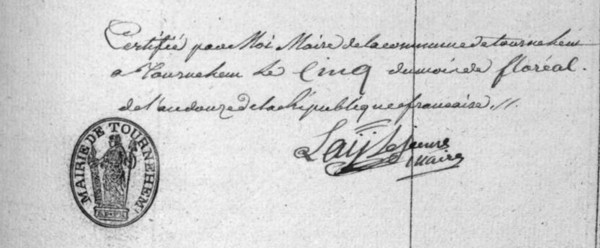 Certifié par Moi Maire de la commune de tournehem
a Tournehem Le Cinq du mois de floréal.
de l'an douze de la République francaise //.
Lay Lejeune
maire
MAIRIE DE TOURNEHEM